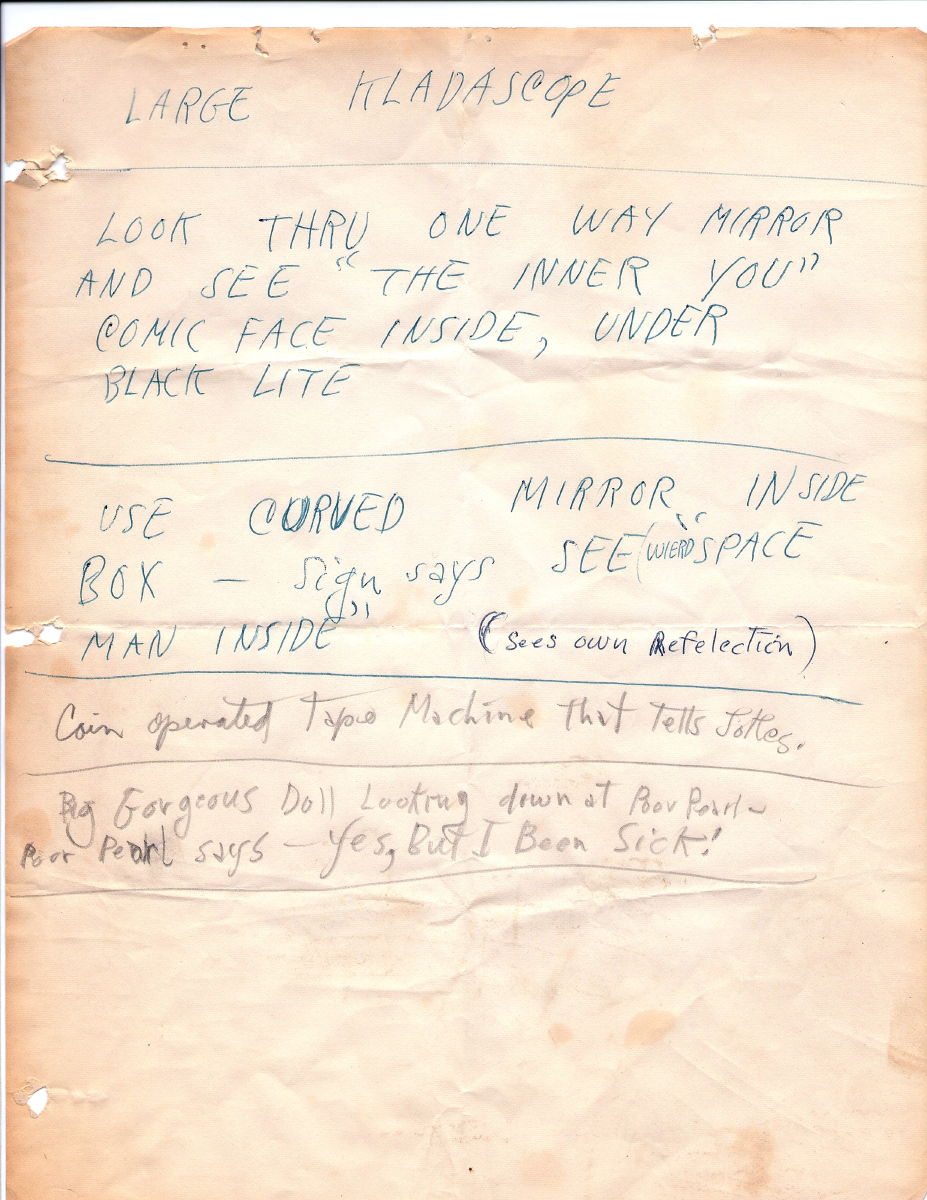 LARGE KLADASCOPE
LOOK THRU ONE WAY MIRROR
AND SEE "THE INNER YOU"
COMIC FACE INSIDE, UNDER
BLACK LITE
USE CURVED MIRROR INSIDE
BOX — Sign says SEE "(WIERD SPACE
MAN INSIDE" (sees own Refelection)
Coin operated Tape Machine That Tells Jokes.
Big Gorgeous Doll Looking down at Poor Pearl —
Poor Pearl says — Yes, But I Been Sick!